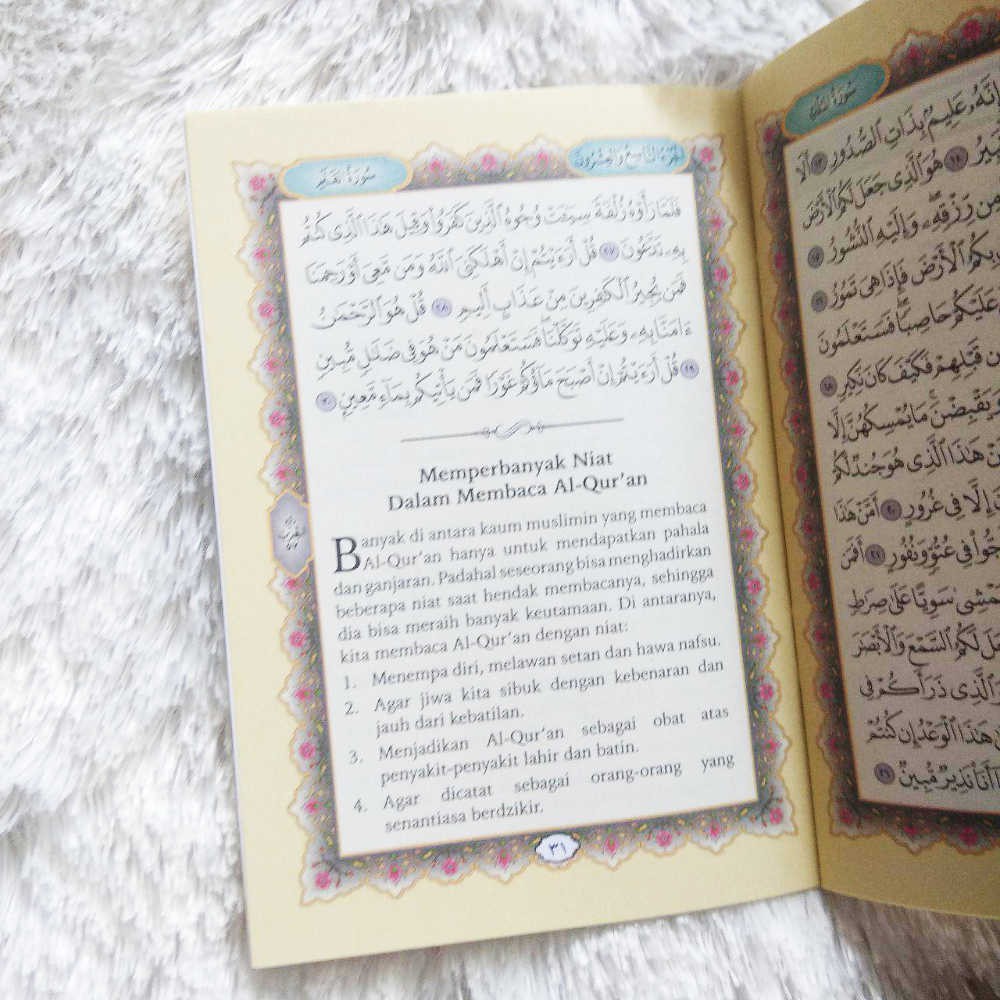 الجزء التاسع والعشرون
فَلَمَّا رَأَوْهُ زُلْفَةً سِيٓـَٔتْ وُجُوهُ ٱلَّذِينَ كَفَرُوا۟ وَقِيلَ هَٰذَا ٱلَّذِى كُنتُم
بِهِۦ تَدَّعُونَ ٢٧ قُلْ أَرَءَيْتُمْ إِنْ أَهْلَكَنِىَ ٱللَّهُ وَمَن مَّعِىَ أَوْ رَحِمَنَا
فَمَن يُجِيرُ ٱلْكَٰفِرِينَ مِنْ عَذَابٍ أَلِيمٍ ٢٨ قُلْ هُوَ ٱلرَّحْمَٰنُ
ءَامَنَّا بِهِۦ وَعَلَيْهِ تَوَكَّلْنَا ۖ فَسَتَعْلَمُونَ مَنْ هُوَ فِى ضَلَٰلٍ مُّبِينٍ
٢٩ قُلْ أَرَءَيْتُمْ إِنْ أَصْبَحَ مَآؤُكُمْ غَوْرًا فَمَن يَأْتِيكُم بِمَآءٍ مَّعِينٍۭ ٣٠
Memperbanyak Niat
Dalam Membaca Al-Qur'an
Banyak di antara kaum muslimin yang membaca
Al-Qur'an hanya untuk mendapatkan pahala
dan ganjaran. Padahal seseorang bisa menghadirkan
beberapa niat saat hendak membacanya, sehingga
dia bisa meraih banyak keutamaan. Di antaranya,
kita membaca Al-Qur'an dengan niat:
1. Menempa diri, melawan setan dan hawa nafsu.
2. Agar jiwa kita sibuk dengan kebenaran dan
jauh dari kebatilan.
3. Menjadikan Al-Qur'an sebagai obat atas
penyakit-penyakit lahir dan batin.
4. Agar dicatat sebagai orang-orang yang
senantiasa berdzikir.
٣١
سورة الملك
إِنَّهُۥ عَلِيمٌۢ بِذَاتِ ٱلصُّدُورِ ١٣ أَلَا
١٤ هُوَ ٱلَّذِى جَعَلَ لَكُمُ ٱلْأَرْضَ
مِن رِّزْقِهِۦ ۖ وَإِلَيْهِ ٱلنُّشُورُ ١٥
بِكُمُ ٱلْأَرْضَ فَإِذَا هِىَ تَمُورُ ١٦
عَلَيْكُمْ حَاصِبًا ۖ فَسَتَعْلَمُونَ
مِن قَبْلِهِمْ فَكَيْفَ كَانَ نَكِيرِ ١٨
وَيَقْبِضْنَ ۚ مَا يُمْسِكُهُنَّ إِلَّا
هَٰذَا ٱلَّذِى هُوَ جُندٌ لَّكُمْ
إِلَّا فِى غُرُورٍ ٢٠ أَمَّنْ هَٰذَا
لَّجُّوا۟ فِى عُتُوٍّ وَنُفُورٍ ٢١ أَفَمَن
يَمْشِى سَوِيًّا عَلَىٰ صِرَٰطٍ
لَكُمُ ٱلسَّمْعَ وَٱلْأَبْصَٰرَ
ٱلَّذِى ذَرَأَكُمْ فِى
هَٰذَا ٱلْوَعْدُ إِن كُنتُمْ
أَنَا۠ نَذِيرٌ مُّبِينٌ ٢٦